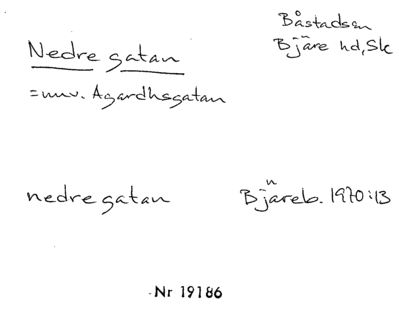 Båstads sn
Nedre gatan
Bjäre hd, Sk
= nuv. Agardhsgatan
nedre gatan Bjäreb. 1970:13
Nr 19186